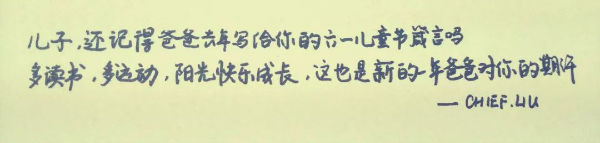 儿子,还记得爸爸去年写给你的六一儿童节箴言吗
多读书,多运动,阳光快乐成长,这也是新的一年爸爸对你的期许
— CHIEF.LIU